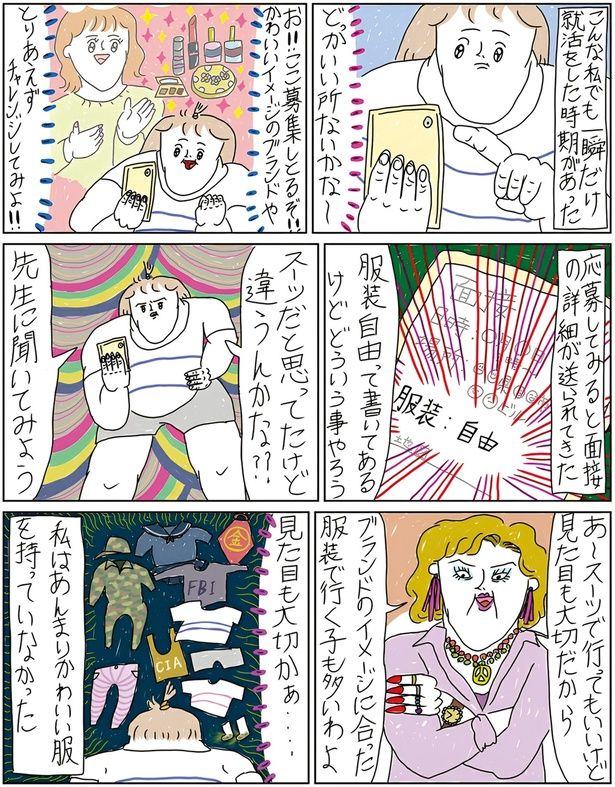 こんな私でも一瞬だけ
就活をした時期があった
どっかいい所ないかな〜
お!!ここ募集しとるぞ!!
かわいいイメージのブランドや
とりあえず
チャレンジしてみよ!!
応募してみると面接
の詳細が送られてきた
面接
日時：〇月〇日
場所：
服装：自由
服装自由って書いてある
けどどういう事やろう
スーツだと思ってたけど
違うんかな??
先生に聞いてみよう
あ〜スーツで行ってもいいけど
見た目も大切だから
ブランドのイメージに合った
服装で行く子も多いわよ
見た目も大切かぁ・・・
金
FBI
CIA
私はあんまりかわいい服
を持っていなかった